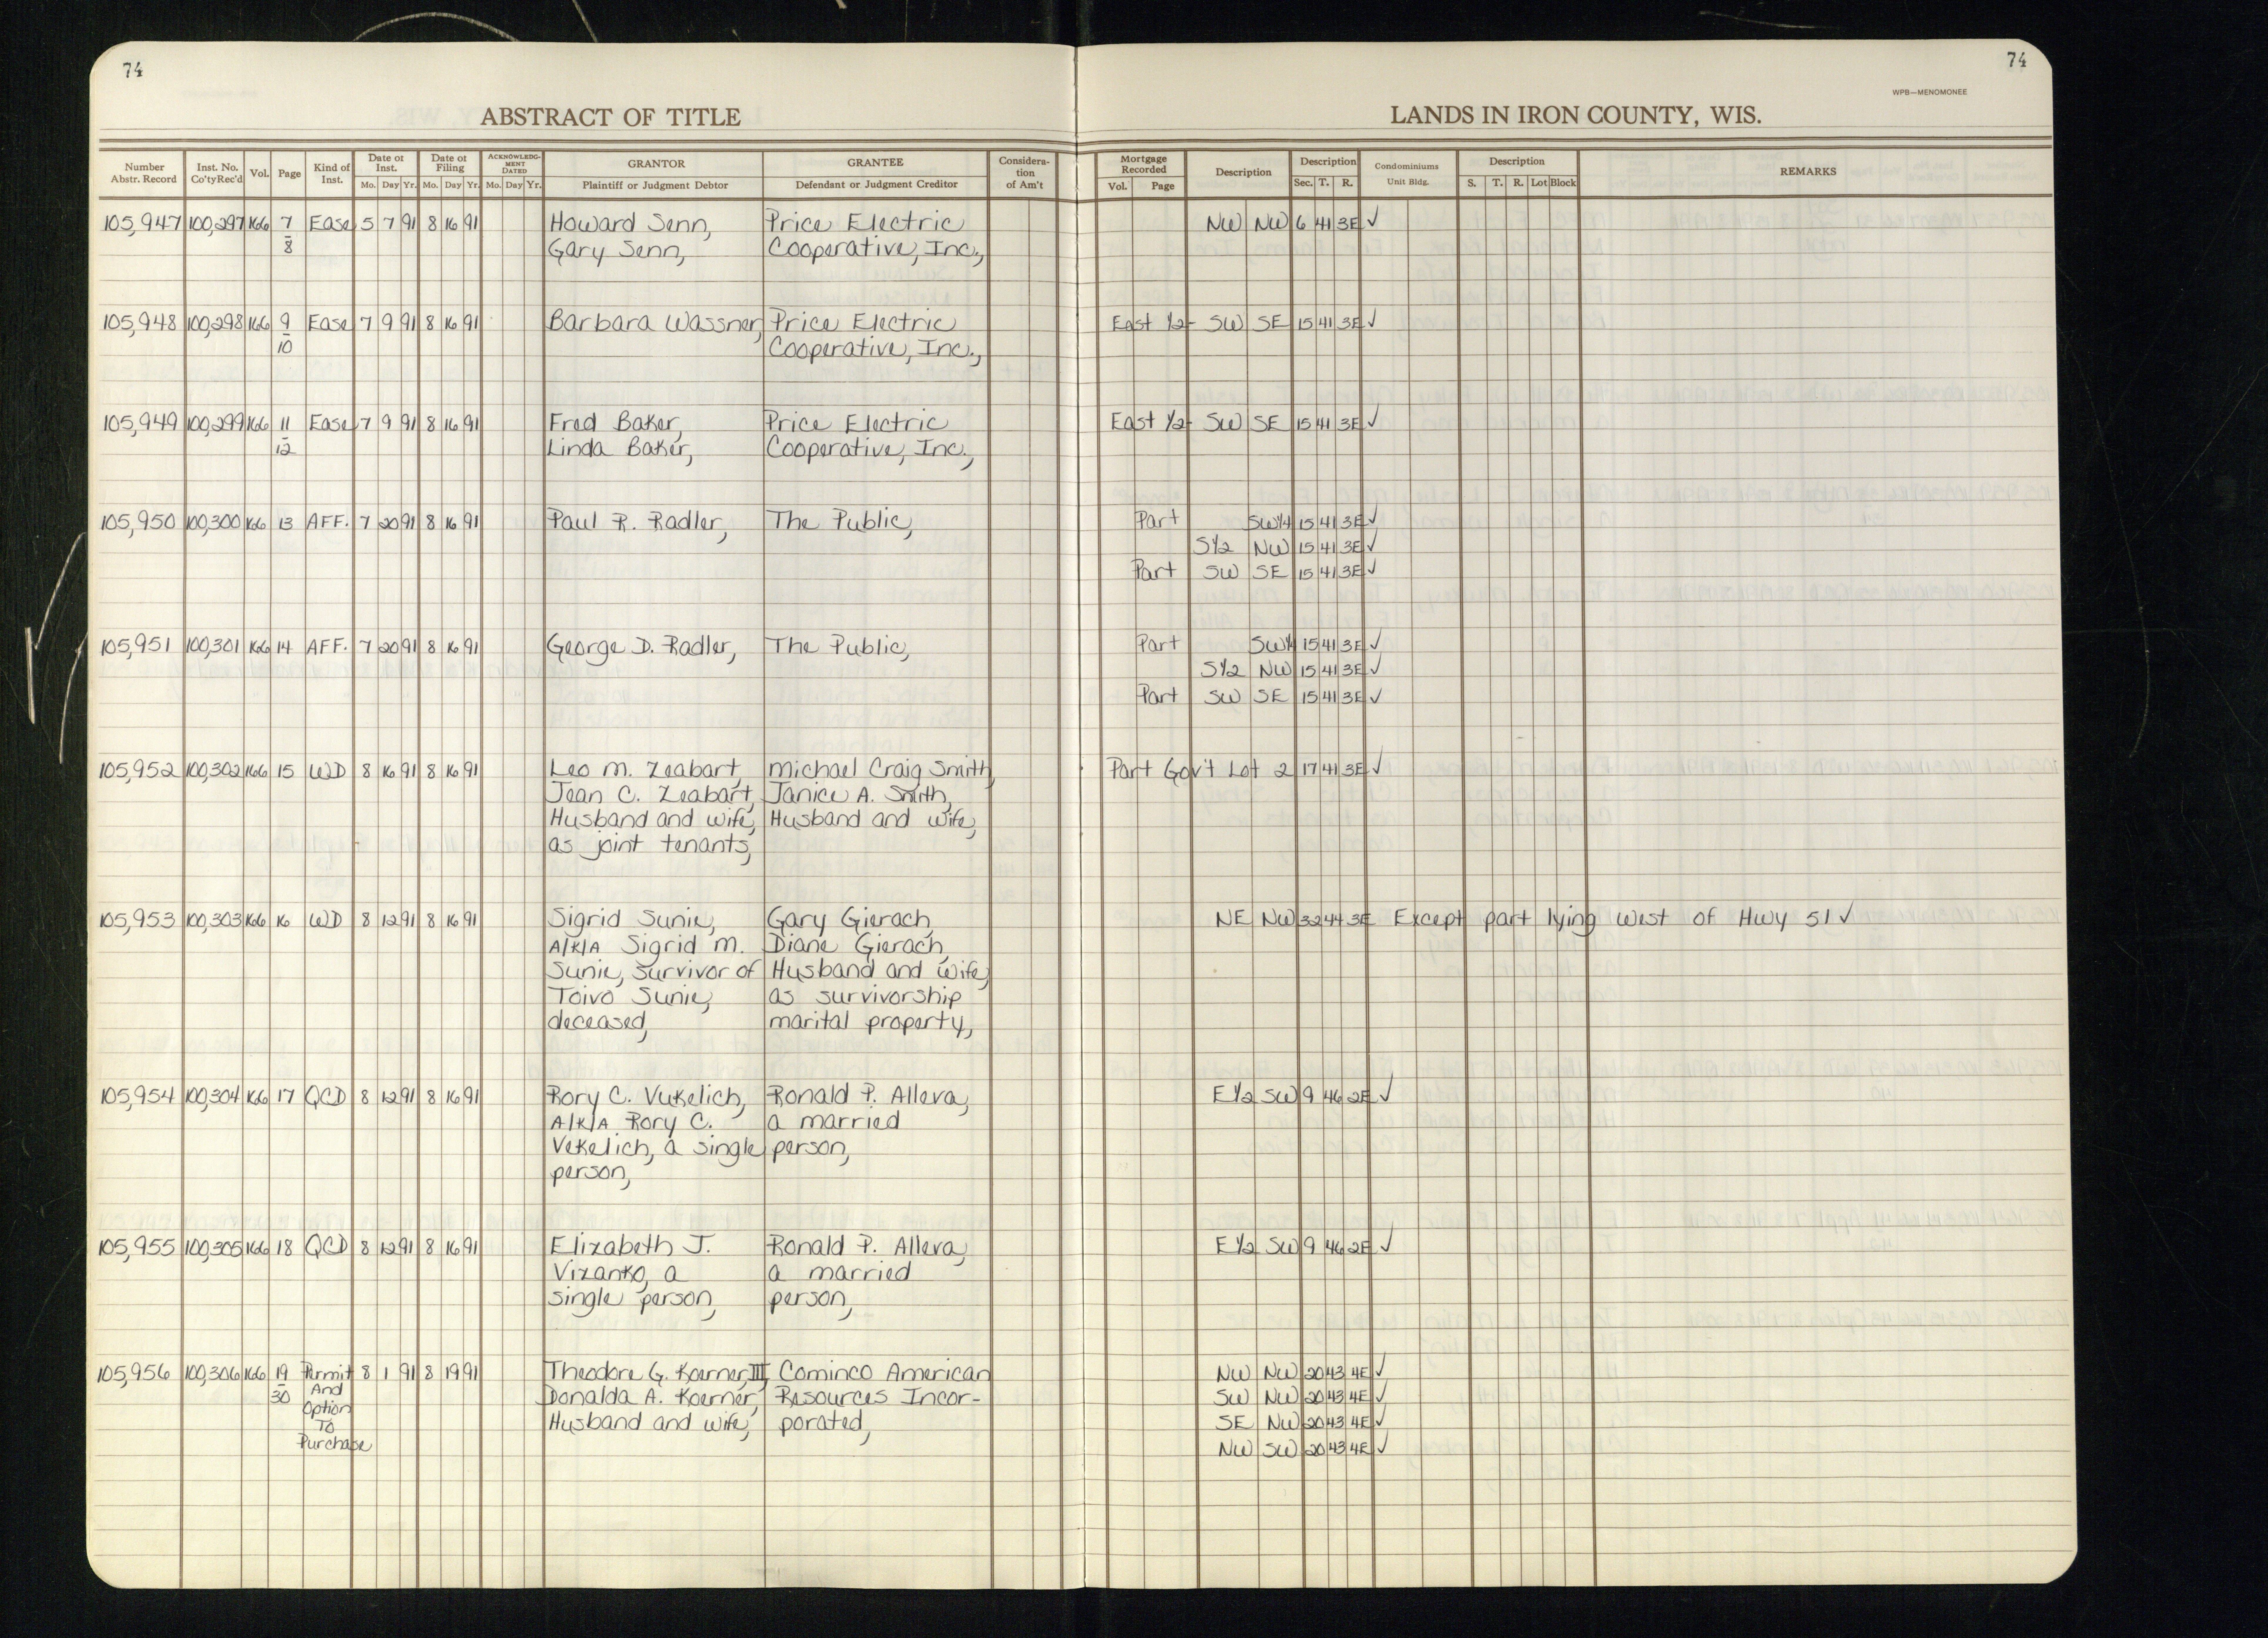 74
74
WPB—MENOMONEE
ABSTRACT OF TITLE
LANDS IN IRON COUNTY, WIS.
Number Abstr. Record Inst. No. Co'ty Rec'd Vol. Page Kind of Inst. Date of Inst. Mo. Day Yr. Date of Filing Mo. Day Yr. ACKNOWLEDGMENT DATED Mo. Day Yr. GRANTOR Plaintiff or Judgment Debtor GRANTEE Defendant or Judgment Creditor Consideration of Am't Mortgage Recorded Vol. Page Description Description Sec. T. R. Condominiums Unit Bldg. Description S. T. R. Lot Block REMARKS
105,947 100,297 166 7 Ease 5 7 91 8 16 91 Howard Senn, Price Electric NW NW 6 41 3E ✓
8 Gary Senn, Cooperative, Inc.,
105,948 100,298 166 9 Ease 7 9 91 8 16 91 Barbara Wassner, Price Electric East 1/2 - SW SE 15 41 3E ✓
10 Cooperative, Inc.,
105,949 100,299 166 11 Ease 7 9 91 8 16 91 Fred Baker, Price Electric East 1/2 - SW SE 15 41 3E ✓
12 Linda Baker, Cooperative, Inc.,
105,950 100,300 166 13 AFF. 7 20 91 8 16 91 Paul R. Radler, The Public, Part SW1/4 15 41 3E ✓
S1/2 NW 15 41 3E ✓
Part SW SE 15 41 3E ✓
105,951 100,301 166 14 AFF. 7 20 91 8 16 91 George D. Radler, The Public, Part SW1/4 15 41 3E ✓
S1/2 NW 15 41 3E ✓
Part SW SE 15 41 3E ✓
105,952 100,302 166 15 WD 8 16 91 8 16 91 Leo M. Zeabart, Michael Craig Smith, Part Gov't Lot 2 17 41 3E ✓
Jean C. Zeabart, Janice A. Smith,
Husband and wife, Husband and wife,
as joint tenants,
105,953 100,303 166 16 WD 8 12 91 8 16 91 Sigrid Sunie, Gary Gierach, NE NW 32 44 3E Except part lying west of Hwy 51 ✓
A/K/A Sigrid M. Diane Gierach,
Sunie, survivor of Husband and wife,
Toivo Sunie, as survivorship
deceased, marital property,
105,954 100,304 166 17 QCD 8 12 91 8 16 91 Rory C. Vukelich, Ronald P. Alleva, E1/2 SW 9 46 2E ✓
A/K/A Rory C. a married
Vekelich, a single person,
person,
105,955 100,305 166 18 QCD 8 12 91 8 16 91 Elizabeth J. Ronald P. Alleva, E1/2 SW 9 46 2E ✓
Vizanko, a a married
single person, person,
105,956 100,306 166 19 Permit 8 1 91 8 19 91 Theodore G. Koerner, III, Cominco American NW NW 20 43 4E ✓
30 And Option Donalda A. Koerner, Resources Incor- SW NW 20 43 4E ✓
To Husband and wife, porated, SE NW 20 43 4E ✓
Purchase NW SW 20 43 4E ✓